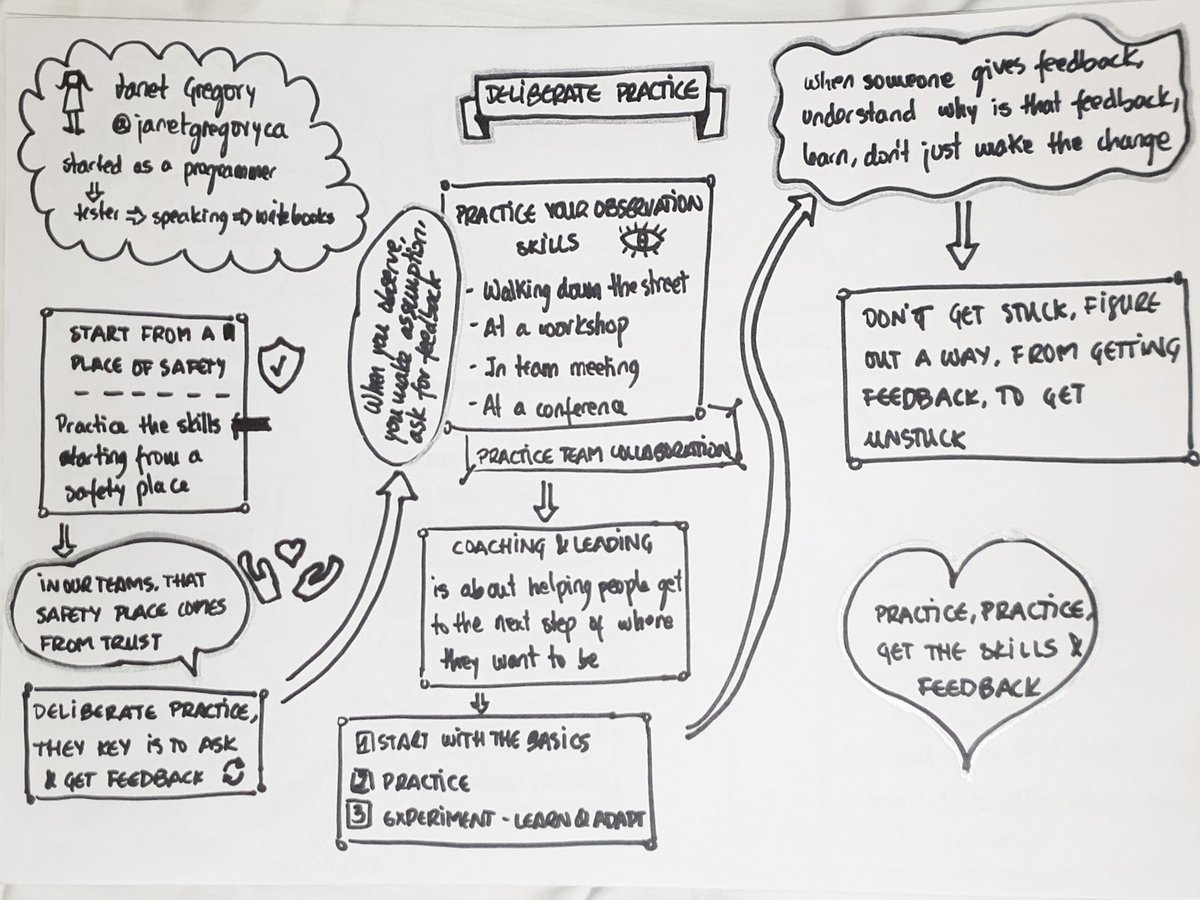 Janet Gregory
@janetgregoryca
started as a programmer
tester => speaking => write books
DELIBERATE PRACTICE
START FROM A
PLACE OF SAFETY
Practice the skills
starting from a
safety place
IN OUR TEAMS, THAT
SAFETY PLACE COMES
FROM TRUST
DELIBERATE PRACTICE,
THEY KEY IS TO ASK
& GET FEEDBACK
When you observe,
you make assumption,
ask for feedback
PRACTICE YOUR OBSERVATION
SKILLS
- Walking down the street
- At a workshop
- In team meeting
- At a conference
PRACTICE TEAM COLLABORATION
COACHING & LEADING
is about helping people get
to the next step of where
they want to be
1 START WITH THE BASICS
2 PRACTICE
3 EXPERIMENT - LEARN & ADAPT
When someone gives feedback,
understand why is that feedback,
learn, don't just make the change
DON'T GET STUCK, FIGURE
OUT A WAY, FROM GETTING
FEEDBACK, TO GET
UNSTUCK
PRACTICE, PRACTICE,
GET THE SKILLS &
FEEDBACK